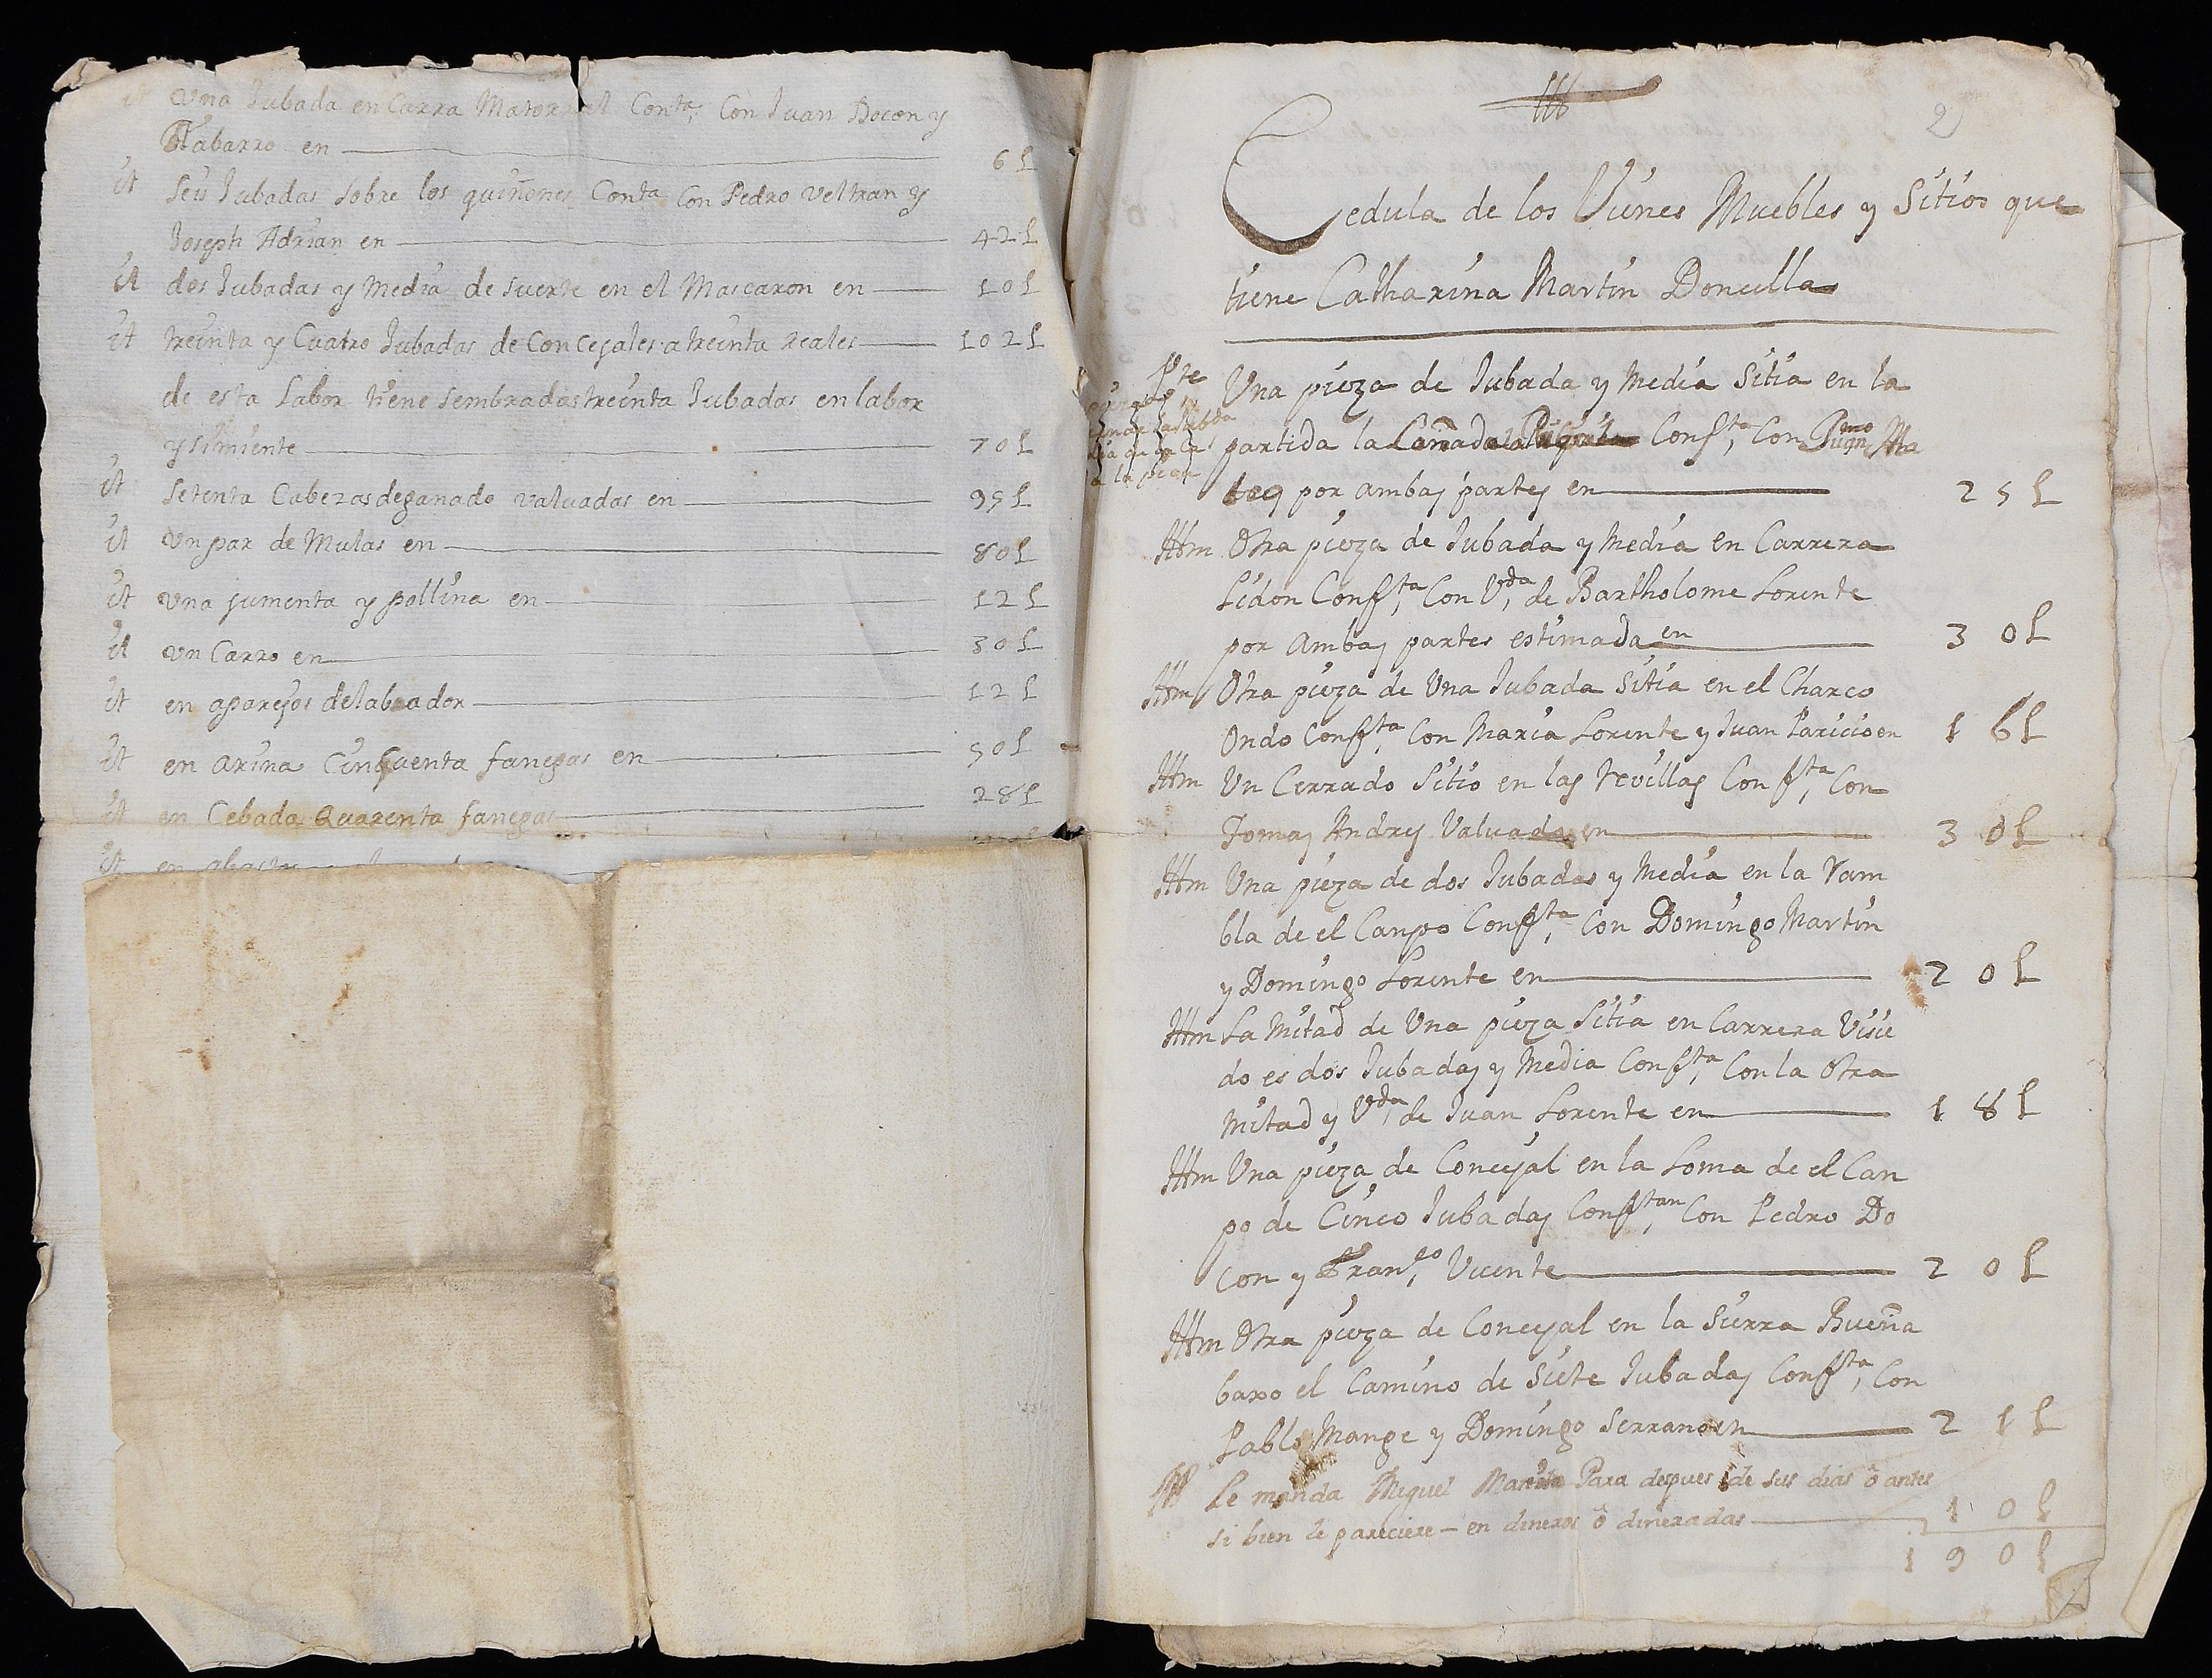 It Una Jubada en Carra Matorral Conta, Con Juan Bocon y
Nabarro en 6 L
It seis Jubadas sobre los quiñones Conta Con Pedro Veltran y
Joseph Adrian en 42 L
It dos Jubadas y Media de suerte en el Mascaron en 10 L
It treinta y Cuatro Jubadas de Concejales a treinta reales 102 L
de esta Labor tiene sembradas treinta Jubadas en labor
y simiente 70 L
It Setenta Cabezas de ganado valuadas en 95 L
It Un par de Mulas en 80 L
It Una jumenta y pollina en 12 L
It Un Carro en 30 L
It en aparejos de labrador 12 L
It en arina Cinquenta fanegas en 50 L
It en Cebada Quarenta fanegas 28 L
It en
2
Cedula de los Vienes Muebles y Sitios que
tiene Catharina Martin Doncella
Pte Una pieza de Jubada y Media Sitia en la
partida la Cañada Confta, Con Juan Ma
teo por ambas partes en 25 L
Ittm Otra pieza de Jubada y Media en Carrera
Lidon Confta, Con Vda, de Bartholome Lorente
por Ambas partes estimada en 30 L
Ittm Otra pieza de Una Jubada Sitia en el Charco
Ondo Confta, Con Maria Lorente y Juan Paricio en 16 L
Ittm Un Cerrado Sitio en las Revillas Confta, Con
Tomas Andres Valuado en 30 L
Ittm Una pieza de dos Jubadas y Media en la Ram
bla de el Canpo Confta, Con Domingo Martin
y Domingo Lorente en 20 L
Ittm La Mitad de Una pieza Sitia en Carrera Visie
do es dos Jubadas y Media Confta, Con la Otra
Mitad y Vda, de Juan Lorente en 18 L
Ittm Una pieza de Concejal en la Loma de el Can
po de Cinco Jubadas Confstan, Con Pedro Bo
con y Franco, Vicente 20 L
Ittm Otra pieza de Concejal en la Sierra Bueña
baxo el Camino de Siete Jubadas Confta, Con
Pablo Mange y Domingo Serrano en 21 L
Itt Le manda Miguel Martin Para despues de sus dias ô antes
si bien le pareciere - en dineros ô dineradas 10 L
190 L